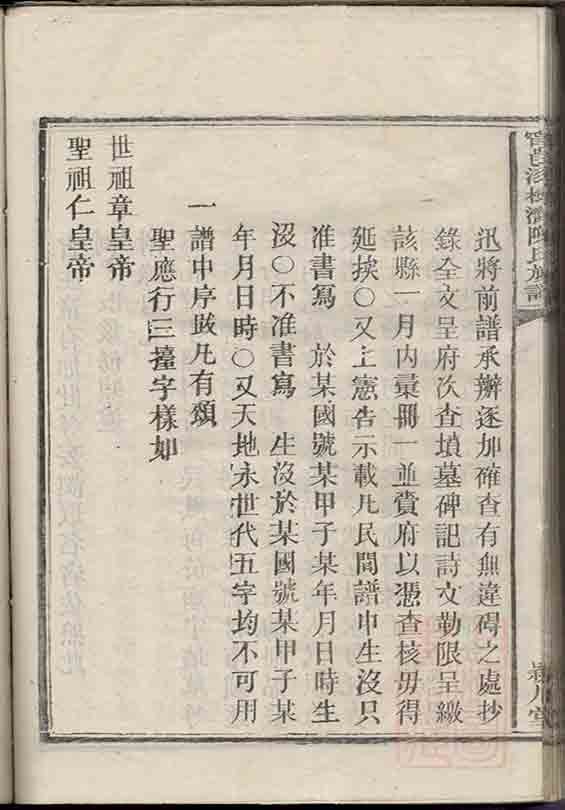 迅將前譜承辦逐加確查有無違碍之處抄
錄全文呈府次查墳墓碑記詩文勒限呈繳
該縣一月內彙冊一並賫府以憑查核毋得
延挨○又上憲告示載凡民間譜中生沒只
准書寫　於某國號某甲子某年月日時生
沒○不准書寫　生沒於某國號某甲子某
年月日時○又天地永世代五字均不可用
一譜中序跋凡有頌
聖應行三擡字樣如
世祖章皇帝
聖祖仁皇帝